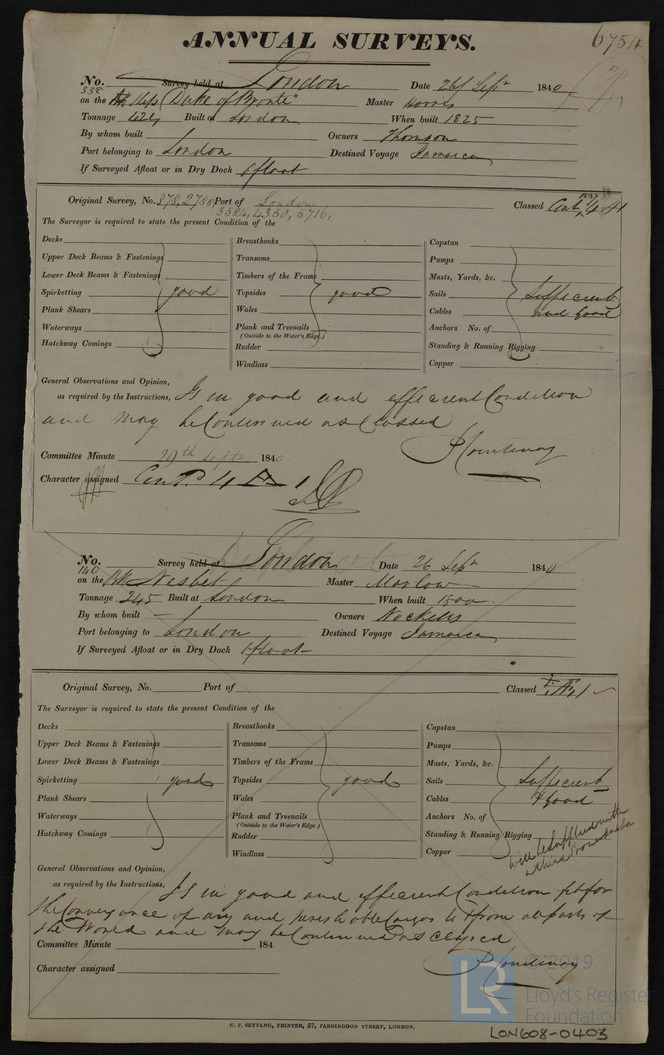 6754
ANNUAL SURVEYS.
No. 338 Survey held at London Date 26 Sept 1840
on the Ship "Duke of Bronte" Master
Tonnage 424 Built at London When built 1825
By whom built Owners Thomson
Port belonging to London Destined Voyage Jamaica
If Surveyed Afloat or in Dry Dock Afloat
Original Survey, No. 878, 2780, Port of London Classed
3584, 4350, 5716,
The Surveyor is required to state the present Condition of the
Decks Breasthooks Capstan
Upper Deck Beams & Fastenings Transoms Pumps
Lower Deck Beams & Fastenings Timbers of the Frame Masts, Yards, &c.
Spirketting good Topsides good Sails Sufficient
Plank Shears Wales Cables and Good
Waterways Plank and Treenails Anchors No. of
(Outside to the Water's Edge.)
Hatchway Comings Rudder Standing & Running Rigging
Windlass Copper
General Observations and Opinion,
as required by the Instructions, Is in good and efficient Condition
and may be Continued as Classed
Committee Minute 29th Septr 1840
Character assigned 4 A 1
No. 140 Survey held at London Date 26 Sept 1840
on the Bk Nesbet Master Morlow
Tonnage 245 Built at London When built 1800
By whom built — Owners
Port belonging to London Destined Voyage Jamaica
If Surveyed Afloat or in Dry Dock Afloat
Original Survey, No. Port of Classed
The Surveyor is required to state the present Condition of the
Decks Breasthooks Capstan
Upper Deck Beams & Fastenings Transoms Pumps
Lower Deck Beams & Fastenings Timbers of the Frame Masts, Yards, &c.
Spirketting good Topsides good Sails Sufficient
Plank Shears Wales Cables & Good
Waterways Plank and Treenails Anchors No. of
(Outside to the Water's Edge.)
Hatchway Comings Rudder Standing & Running Rigging
Windlass Copper
will be supplied with
General Observations and Opinion,
as required by the Instructions, Is in good and efficient Condition fit for
the Conveyance of dry and perishable Cargos to & from all parts of
the World and may be Continued as classed
Committee Minute 184
Character assigned
C. F. SEYFANG, PRINTER, 57, FARRINGDON STREET, LONDON.
LR
© 2019
Lloyd's Register
Foundation
LON608-0403